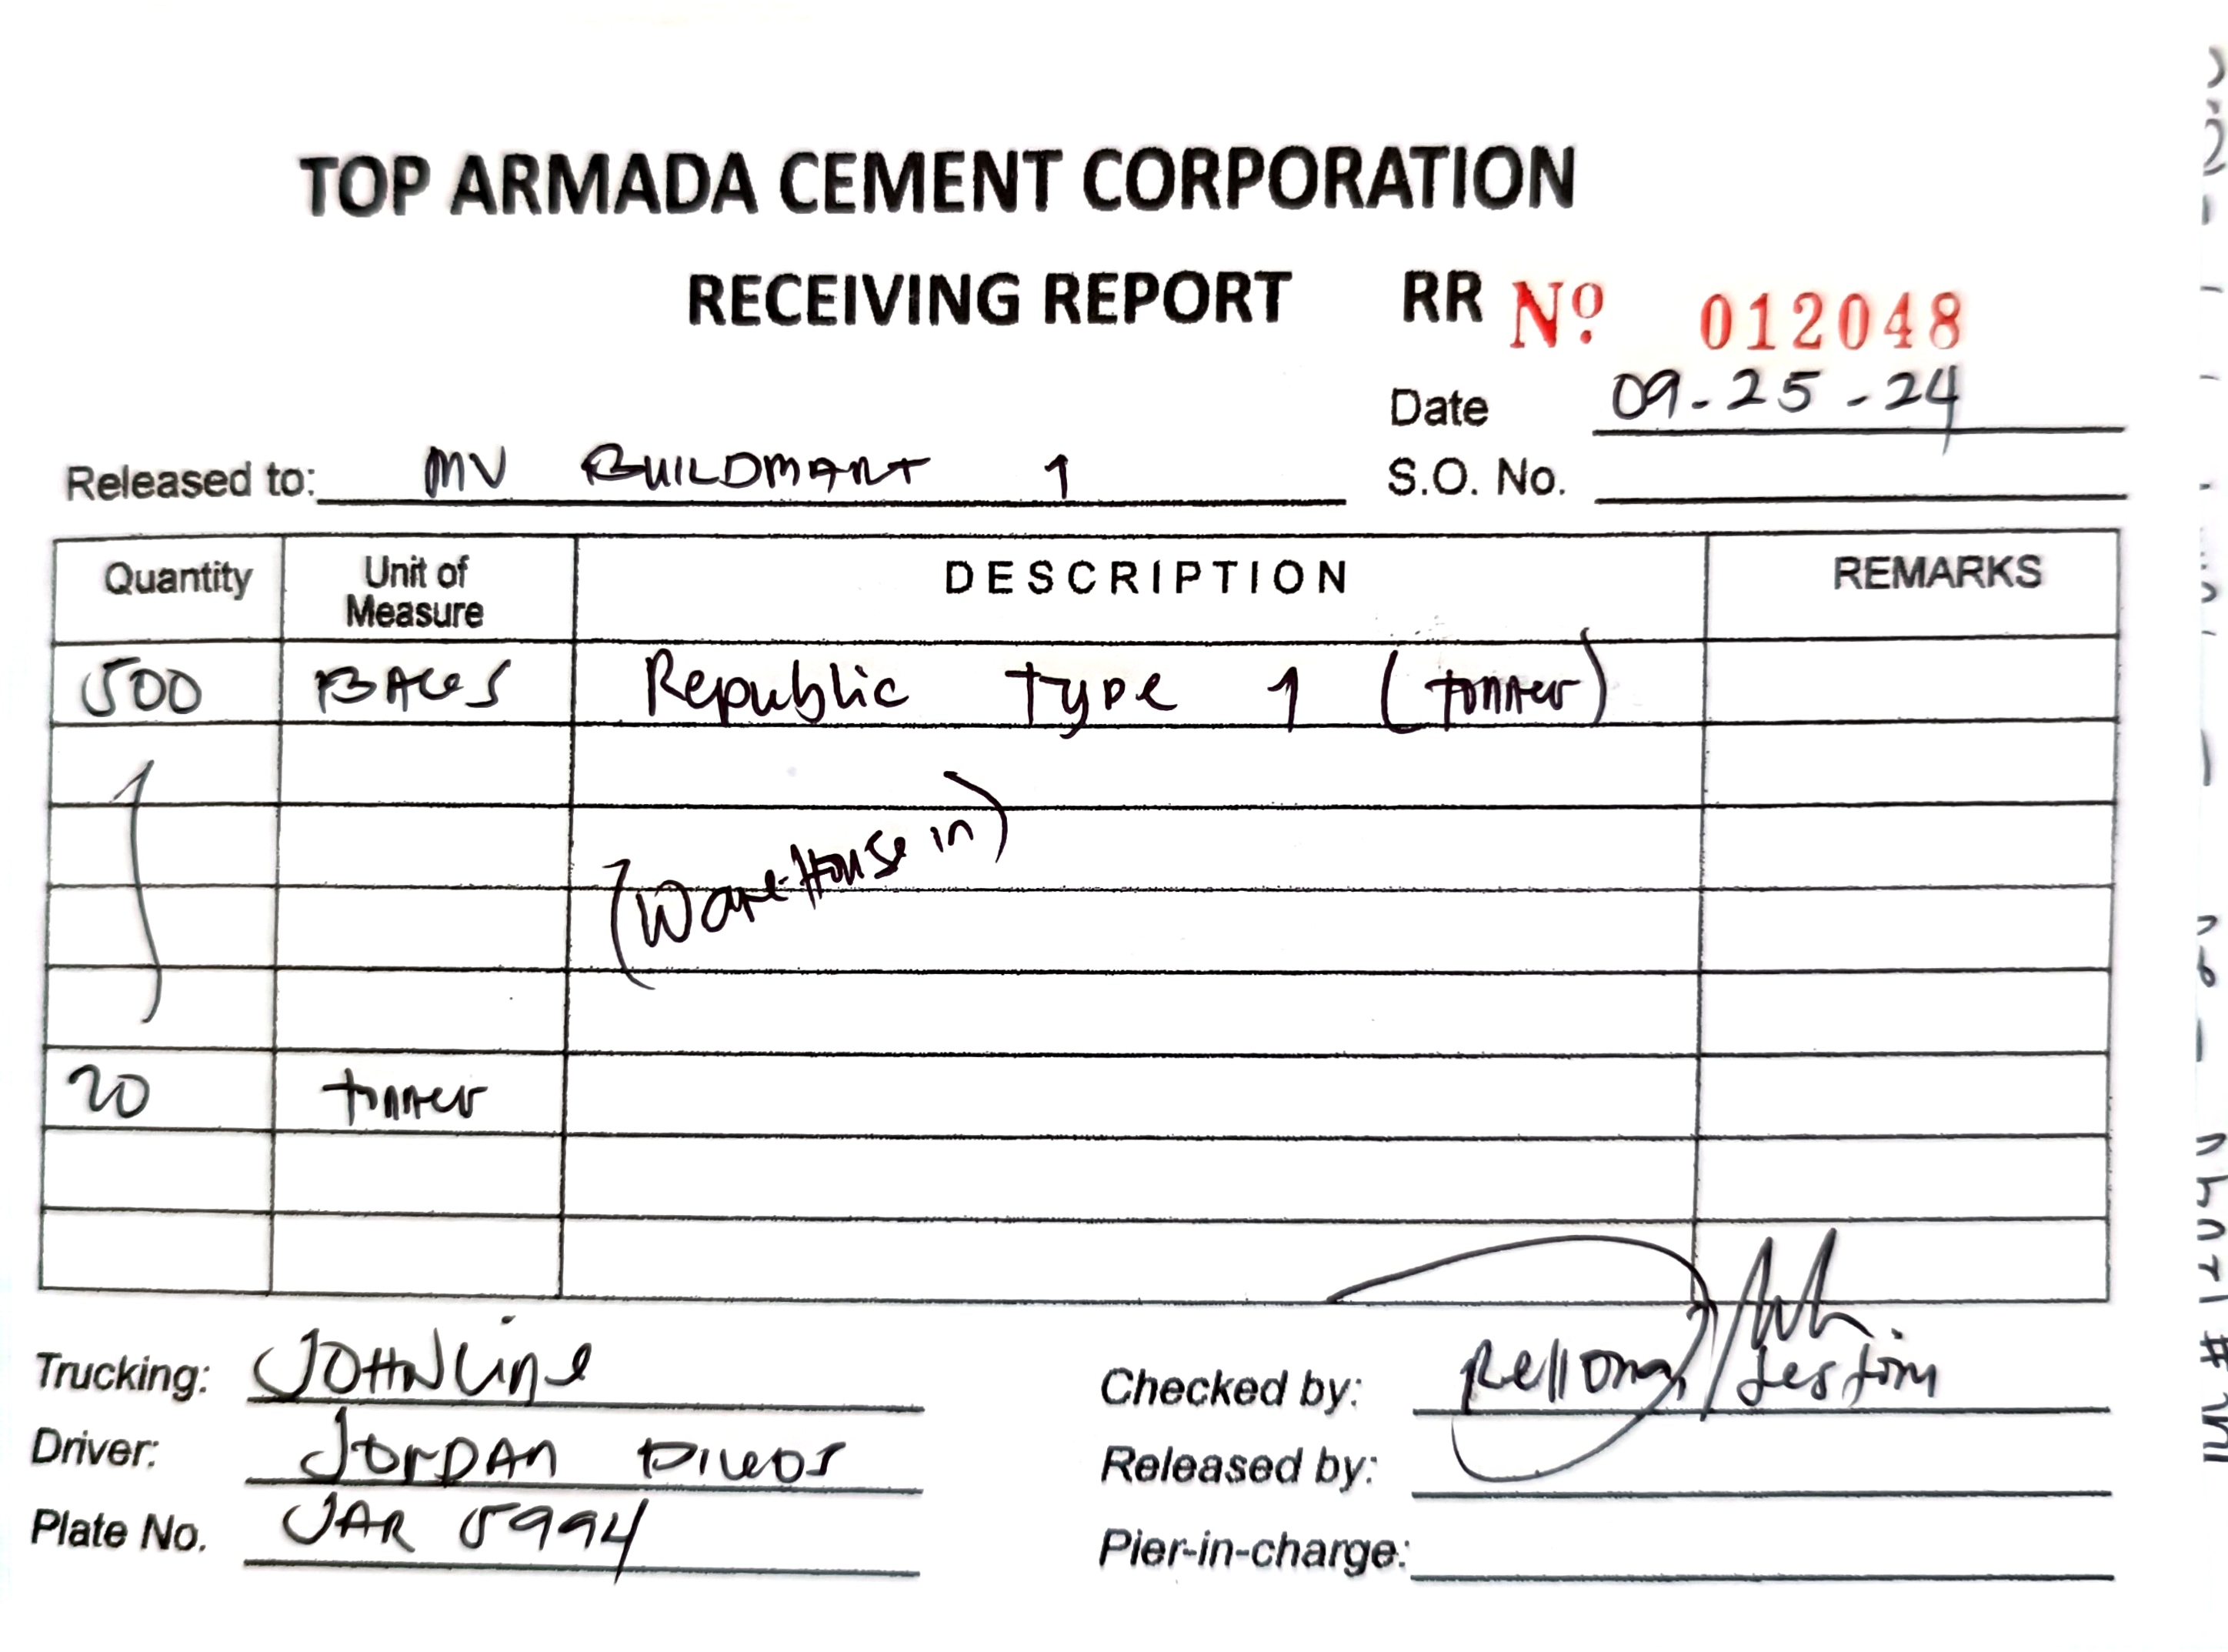 TOP ARMADA CEMENT CORPORATION
RECEIVING REPORT RR Nº 012048
Date 09-25-24
Released to: MV BUILDMART 1 S.O. No.
Quantity Unit of Measure DESCRIPTION REMARKS
500 BAGS Republic Type 1 (tonner)
(Ware-House in)
20 tonner
Trucking: JOHNLine
Checked by:
Driver: JORDAN
Released by:
Plate No. JAR 5994
Pier-in-charge: